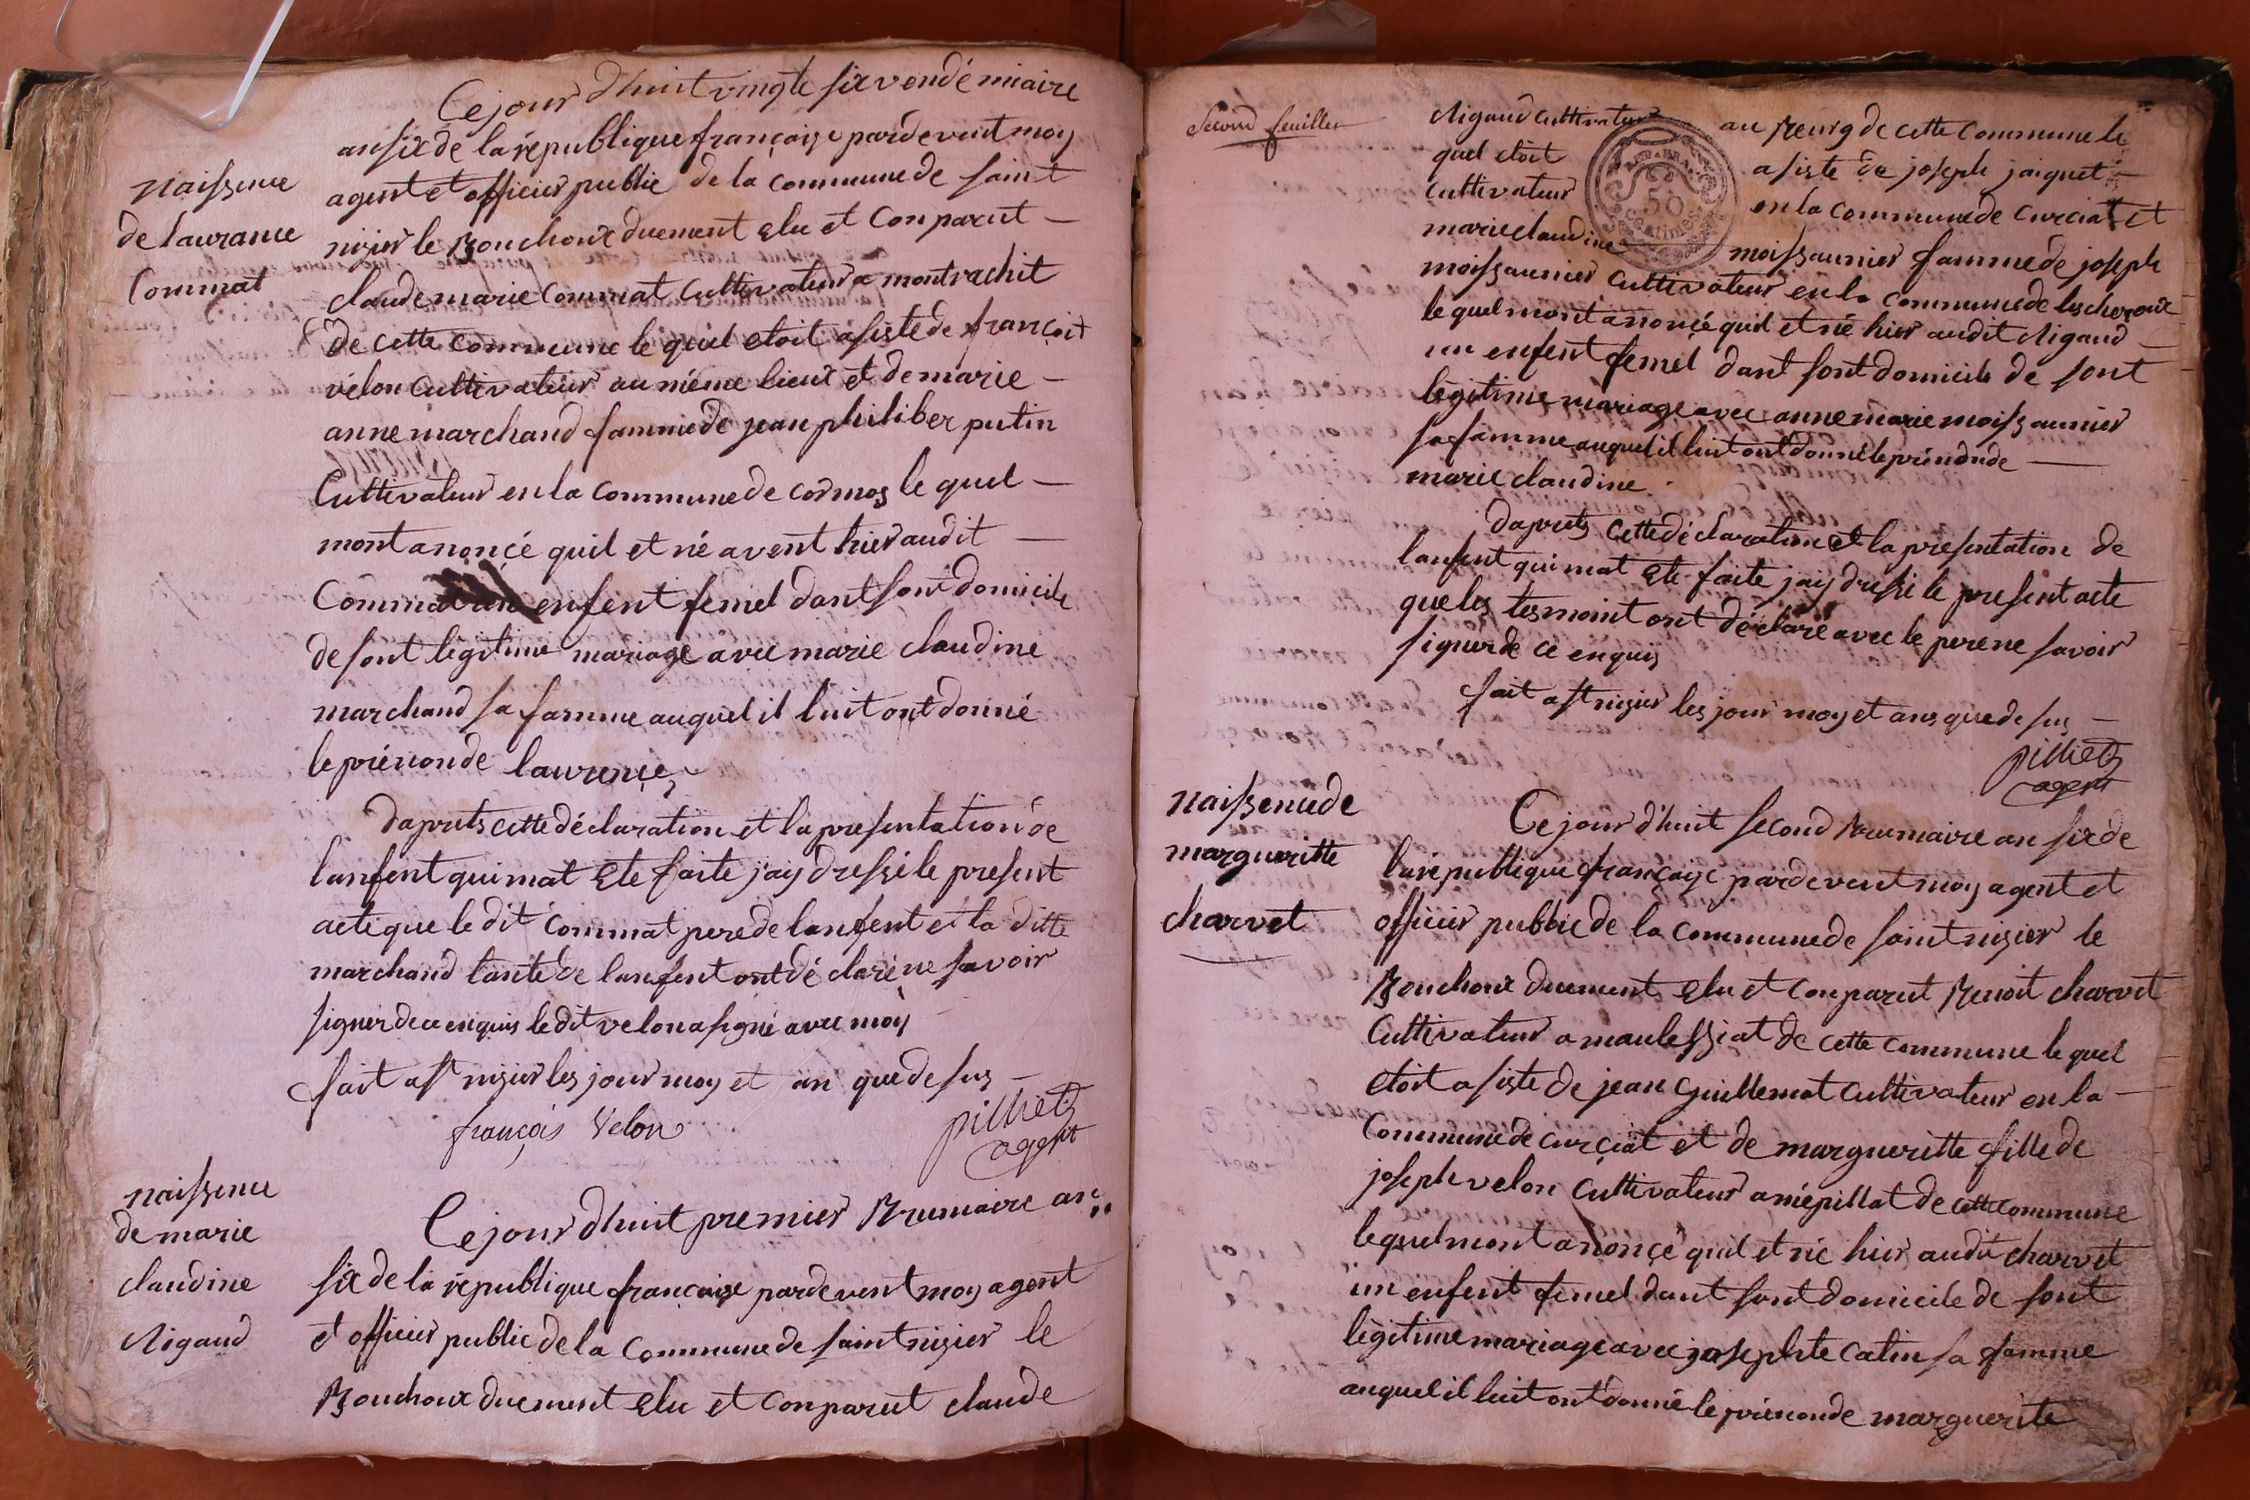 Ce jour d'huit vingte six vendémiaire
an six de la république françaize pardevent moy
agent et officier public de la commune de saint
nizier le Bouchoux duement elu et Conparut —
claude marie Commat Cultivateur a montrachit
de cette commune le quel etoit asiste de françoit
vélon Cultivateur au méme lieux et de marie —
anne marchand famme de jean philiber putin
Cultivateur en la commune de cormos le quel —
mont anonçé quil et né avent hier audit —
Commat un enfent femel dant sont domicile
de sont légitime mariage avec marie claudine
marchand sa famme auquel il luit ont donné
le prénon de laurençe
Naissence
de laurance
Commat
daprets cette déclaration et la presentation de
lanfent qui mat ete faite jay dressé le present
acte que le dit Commat pere de lanfent et la ditte
marchand tante de lanfent ont déclaré ne savoir
signer de ce enquis le dit velon a signé avec moy
fait a st nizier les jour moy et an que de sus —
françois Velon
pilliet
agent
naissence
de marie
claudine
Rigaud
Ce jour d'huit premier Brumaire an
six de la république françaize pardevent moy agent
et officier public de la Commune de saint nizier le
Bouchoux duement elu et Conparut claude
Second feuillet
Rigaud Cultivateur au Bourg de cette Commune le
quel etoit asiste de joseph jaiquet
Cultivateur en la Commune de Curciat et
marie claudine moissaunier famme de joseph
50
Centimes
moissaunier Cultivateur en la Commune de lescheroux
le quel mont anonçé quil et né hier audit Rigaud —
un enfent femel dant sont domicile de sont
légitime mariage avec anne marie moissaunier
sa famme auquel il luit ont donné le prénon de —
marie claudine .
daprets cette déclaration et la presentation de
lanfent qui mat ete faite jay dressé le present acte
que les tesmoint ont déclaré avec le pere ne savoir
signer de ce enquis
fait a st nizier les jour moy et ans que de sus —
pilliet
agent
Naissence de
margueritte
charvet
Ce jour d'huit second Brumaire an six de
la république françaize pardevent moy agent et
officier public de la Commune de saint nizier le
Bouchoux duement elu et Conparut Benoit charvet
Cultivateur a maulessiat de cette commune le quel
etoit asiste de jean Guillemot Cultivateur en la —
Commune de curçiat et de margueritte fille de
joseph velon Cultivateur a mépillat de cette commune
le quel mont anonçé quil et né hier audit charvet
un enfent femel dant sont domicile de sont
légitime mariage avec josephte Catin sa famme
auquel il luit ont donné le prénon de marguerite